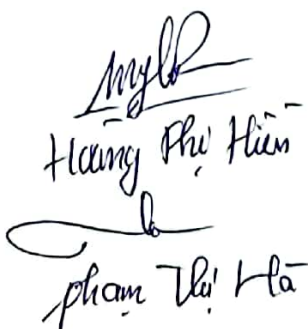 Hoàng Thị Hiền
Phạm Thị Hà